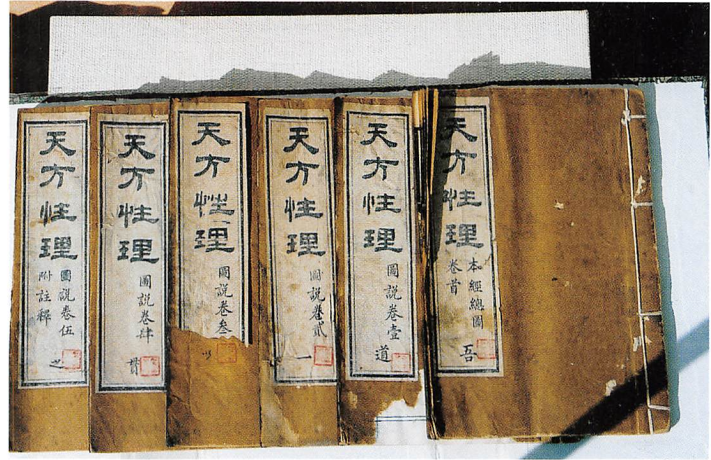 天方性理
本經總圖
卷首
吾
天方性理
圖說卷壹
道
天方性理
圖說卷貳
一
天方性理
圖說卷叁
以
天方性理
圖說卷肆
貫
天方性理
圖說卷伍
附註釋
之